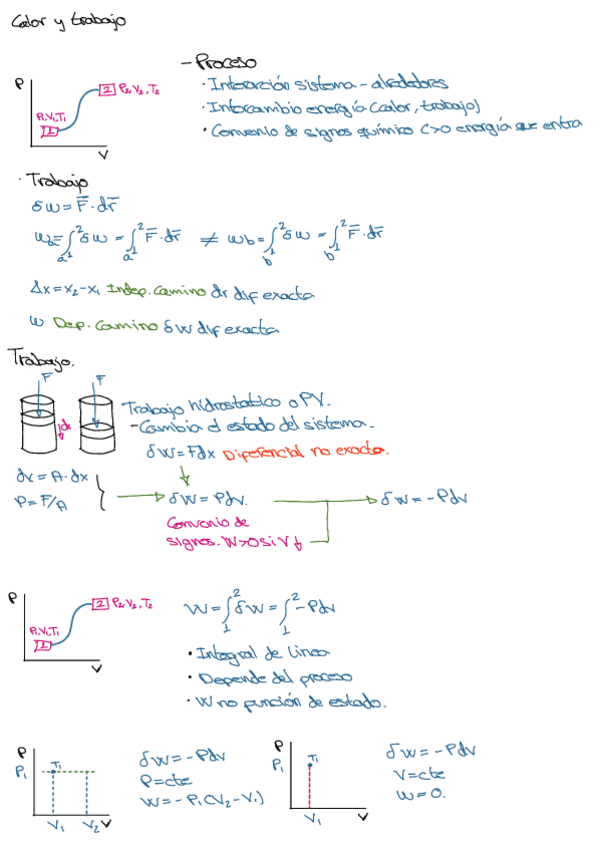 Calor y trabajo
- Proceso
· Interacción sistema - alrededores
· Intercambio energía (calor, trabajo)
· Convenio de signos químico C>0 energía que entra
P
2 P₂, V₂, T₂
P₁, V₁, T₁
1
V
· Trabajo
δw = F̄ · dr̄
wₐ = ∫₁² δw = ∫₁² F̄ · dr̄ ≠ w_b = ∫₁² δw = ∫₁² F̄ · dr̄
a a b b
Δx = x₂ - x₁ Indep. camino dr dif exacta
w Dep. camino δw dif exacta
Trabajo.
F F
dx
Trabajo hidrostatico o PV.
- Cambia el estado del sistema.
δW = Fdx Diferencial no exacta.
dV = A · dx
P = F/A
δW = PdV. δW = -PdV
Convenio de
signos. W>0 si V↓
P
2 P₂, V₂, T₂
P₁, V₁, T₁
1
V
W = ∫₁² δW = ∫₁² -PdV
· Integral de linea
· Depende del proceso
· W no función de estado.
P
P₁ T₁
V₁ V₂ V
δW = -PdV
P = cte
W = -P₁(V₂-V₁)
P
P₁ T₁
V₁ V
δW = -PdV
V = cte
W = 0.